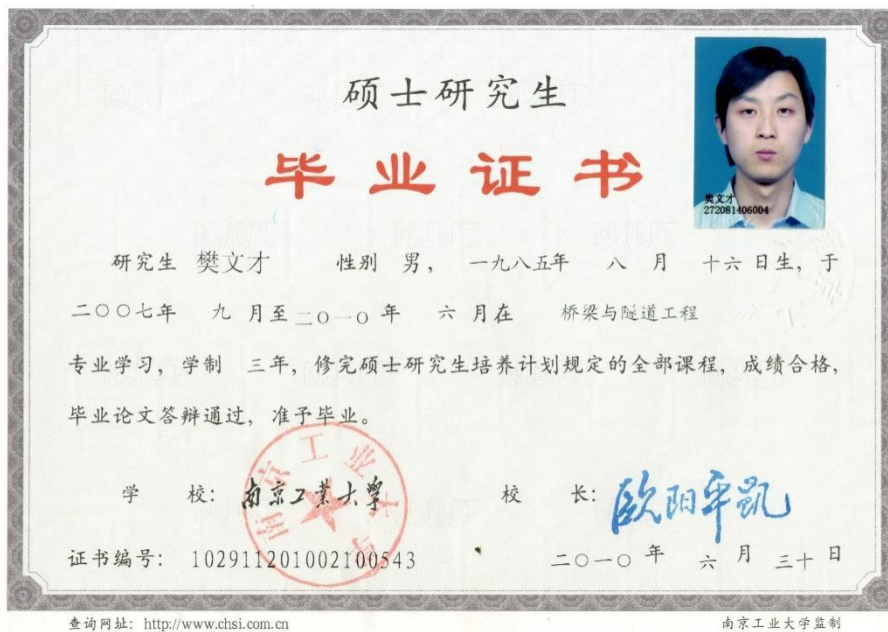 硕士研究生
毕业证书
樊文才
272081406004
研究生 樊文才 性别 男, 一九八五年 八 月 十六 日生, 于
二〇〇七年 九 月至 二〇一〇 年 六 月在 桥梁与隧道工程
专业学习, 学制 三年, 修完硕士研究生培养计划规定的全部课程, 成绩合格,
毕业论文答辩通过, 准予毕业。
南京工业大学
学 校: 南京工业大学 校 长: 欧阳平凯
证书编号: 102911201002100543 二〇一〇 年 六 月 三十 日
查询网址: http://www.chsi.com.cn 南京工业大学监制